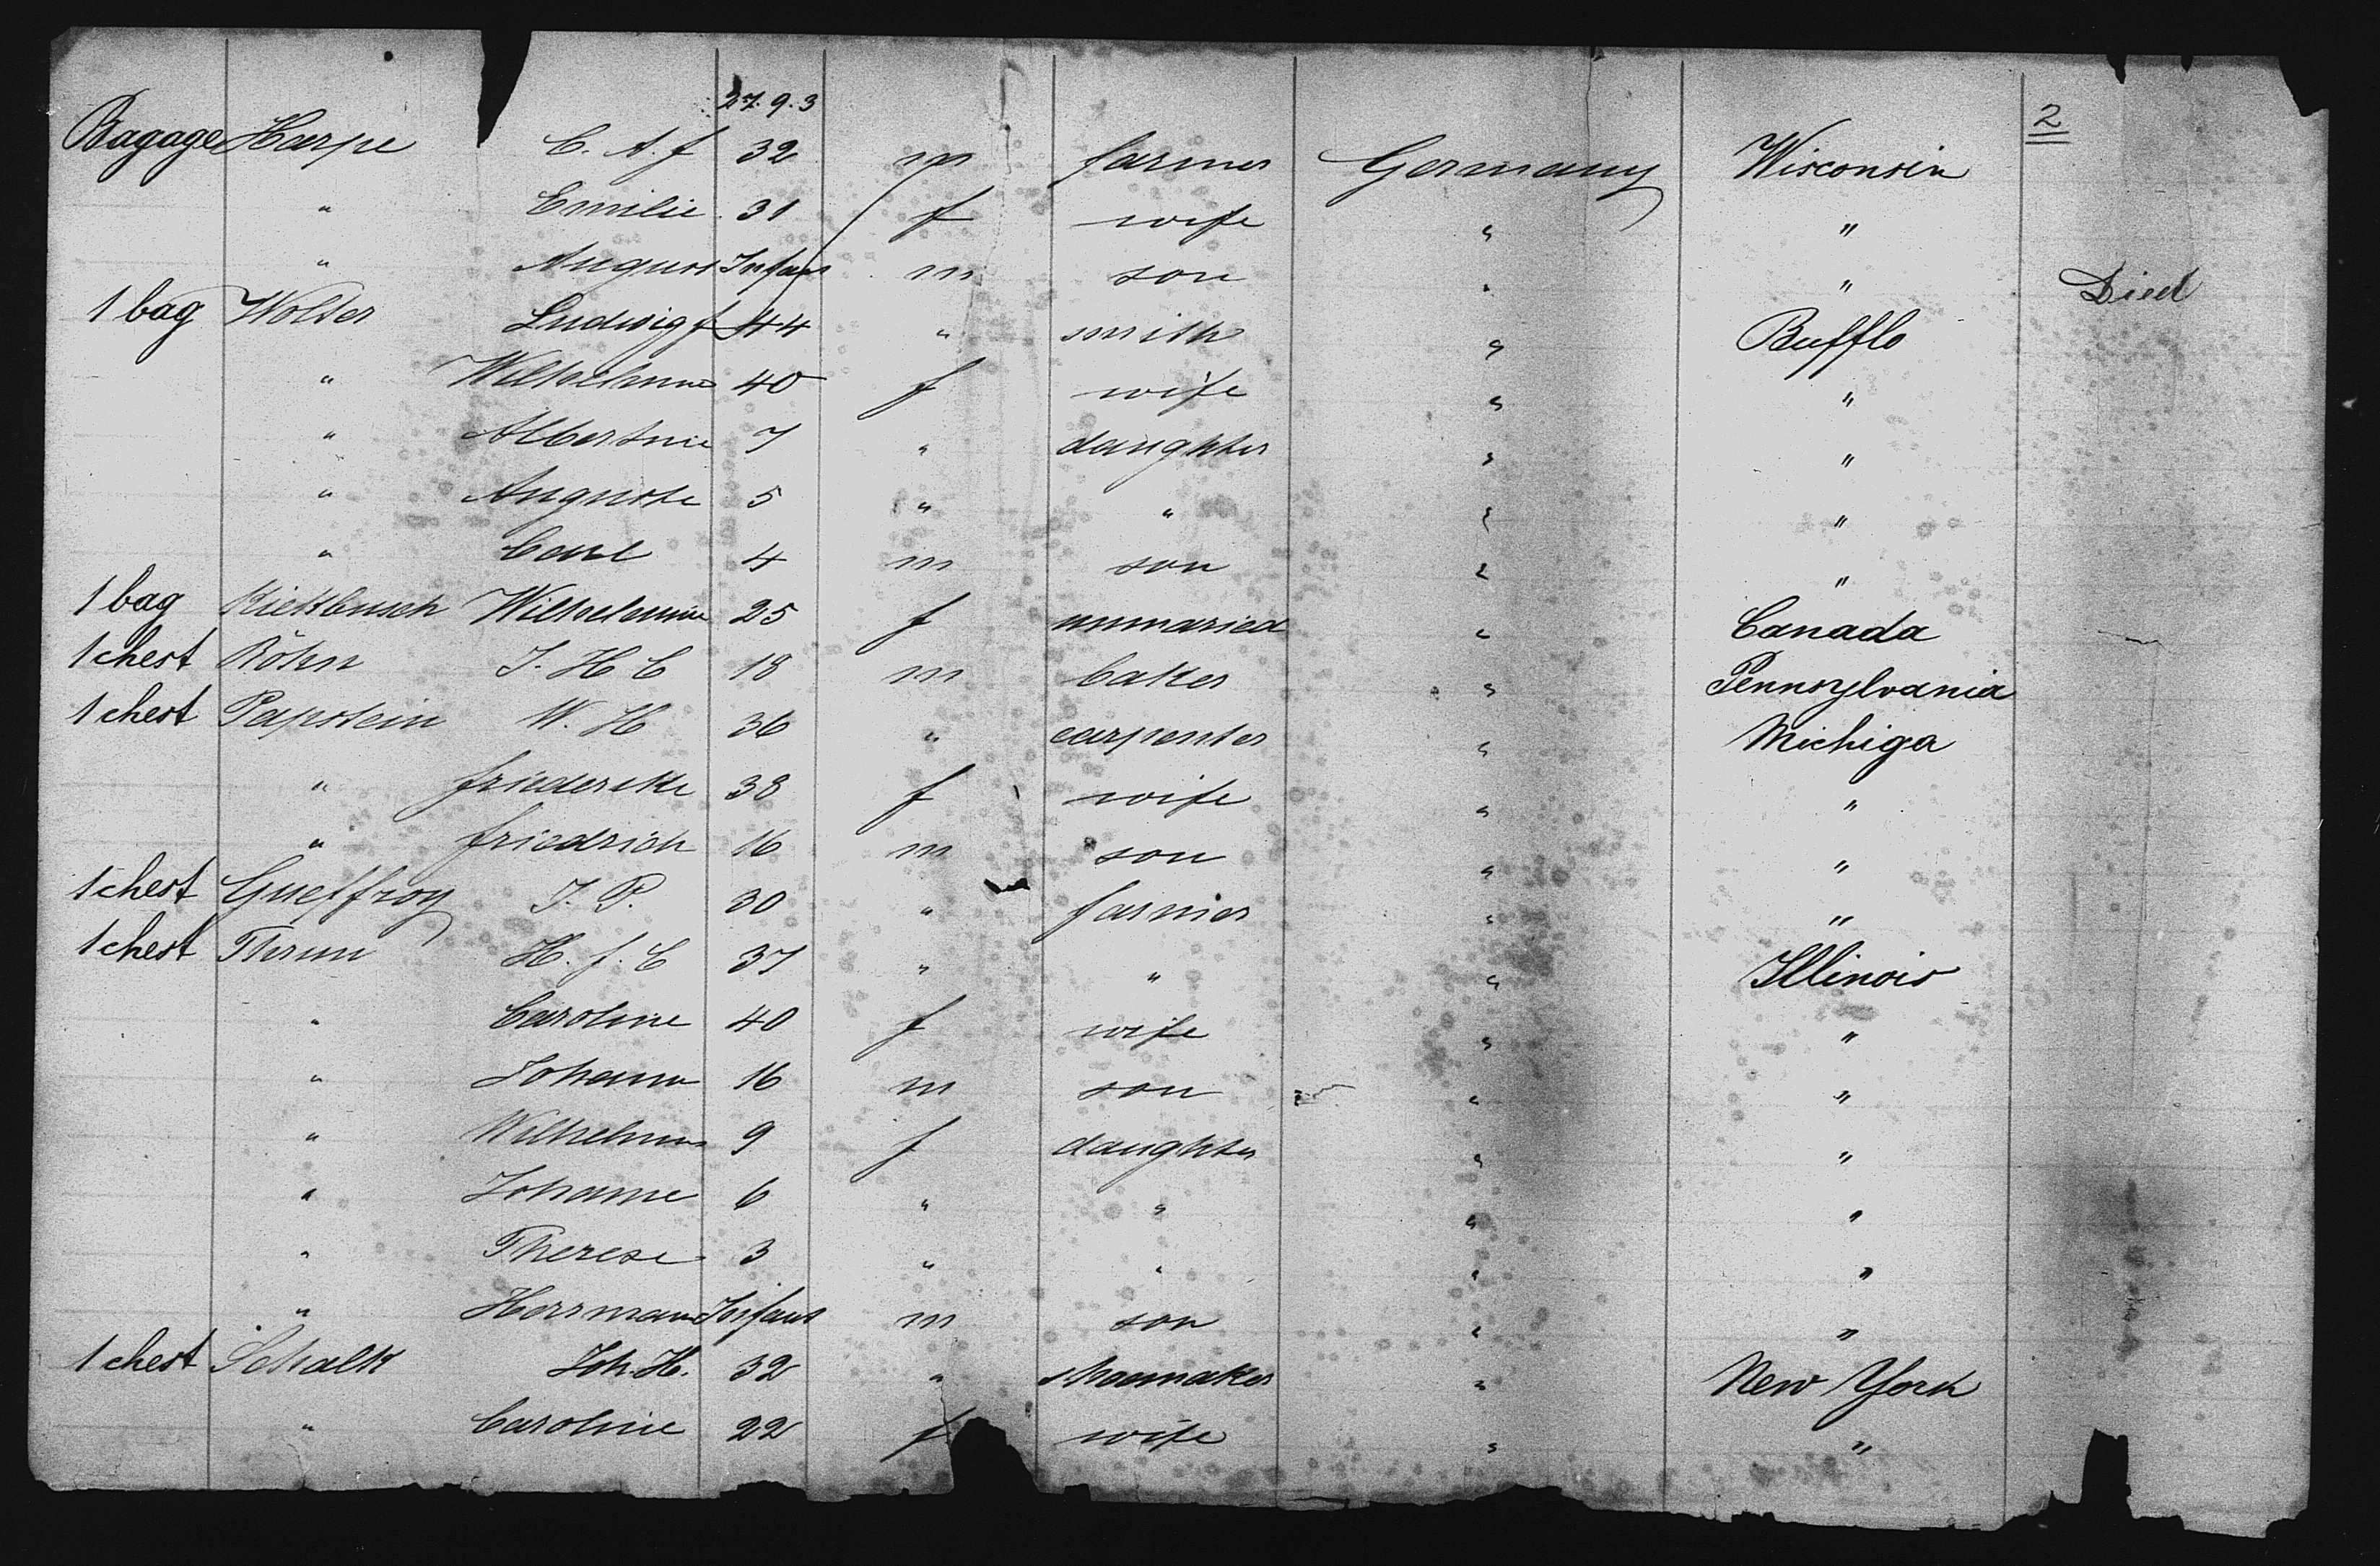 27. 9. 3
2
Bagage Harpe C. A. f 32 m farmer Germany Wisconsin
" Emilie 31 f wife " "
" August Infant m son " " Died
1 bag Wolter Ludwig f 44 " smith " Bufflo
" Wilhelmine 40 f wife " "
" Albertine 7 " daughter " "
" Auguste 5 " " " "
" Carl 4 m son " "
1 bag Kiekbusch Wilhelmine 25 f unmaried " Canada
1 chest Röhn J. H C 18 m baker " Pennsylvania
1 chest Papstein W. H 36 " carpenter " Michiga
" friederike 38 f wife " "
" friedrich 16 m son " "
1 chest Gueffroy J. P. 30 " farmer " "
1 chest Thrun H. f. C 37 " " " Illinois
" Caroline 40 f wife " "
" Johann 16 m son " "
" Wilhelmine 9 f daughter " "
" Johanne 6 " " " "
" Therese 3 " " " "
" Herrmann Infant m son " "
1 chest Schalk Joh. H. 32 " shoemaker " New York
" Caroline 22 f wife " "